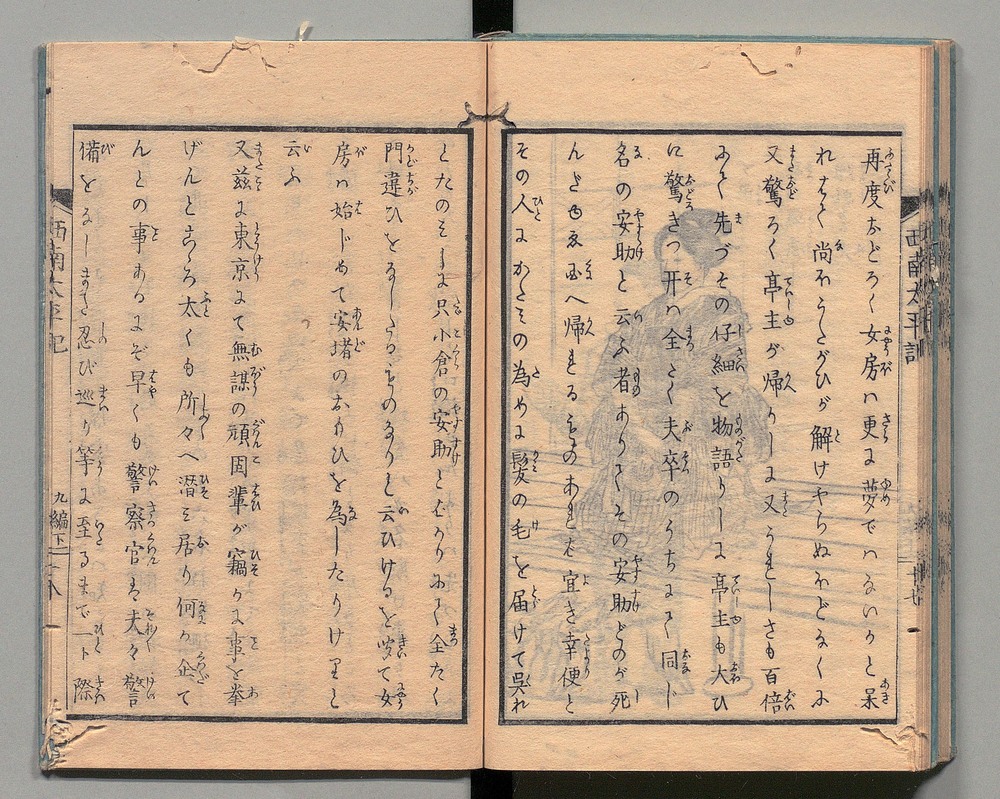 再度おどろく女房ハ更に夢でハないかと呆
れはて尚ほうたがひが解けやらぬほどなくに
又驚ろく亭主が帰りしに又うれしさも百倍
にて先づその仔細を物語りしに亭主も大ひ
に驚きつ开ハ全たく夫卒のうちにて同じ
名の安助と云ふ者ありてその安助どのが死
んだゆゑ国へ帰まるものあれば宜き幸便と
その人にかたみの為めに髪の毛を届けて呉れ
したのみに只小倉の安助とばかりにて全たく
門違ひをなしたるものなりと云ひけるを聞て女
房ハ始じめて安堵のおもひを為したりけりと
云ふ
又茲に東京にて無謀の頑固輩が竊かに事を挙
げんところ太くも所々へ潜み居り何か企て
んとの事あるにぞ早くも警察官は夫々警
備をなしまた忍び巡り等に至るまで一ト際
西南太平記
九編下
八
西南太平記